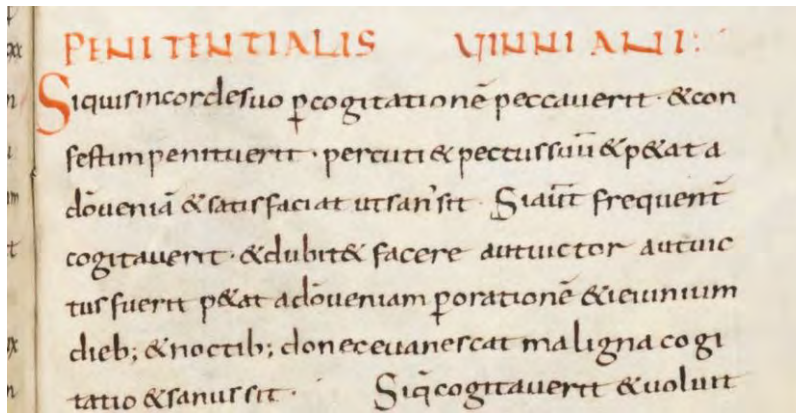 PENITENTIALIS VINNIANI:
Siquis incorde suo ꝑcogitationē peccaverit · &con
festim penituerit · percuti& pectus suū & p&at a
dō veniā & satisfaciat ut san' sit · Si aūt frequent̄
cogitaverit · & dubit& facere aut victor aut vic
tus fuerit p&at a dō veniam ꝑ orationē & ieiunium
dieb; & noctib; donec evanescat maligna cogi
tatio & sanus sit · Siq̄ cogitaverit & voluit